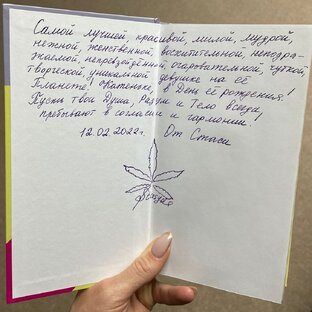 Самой лучшей, красивой, милой, мудрой,
нежной, женственной, восхитительной, неподра-
жаемой, непревзойдённой, очаровательной, чуткой,
творческой, уникальной девушке на её
Планете! Катеньке, в День её рождения!
Пусть твои Душа, Разум и Тело всегда
пребывают в согласии и гармонии!
12.02.2022г. От Стаси